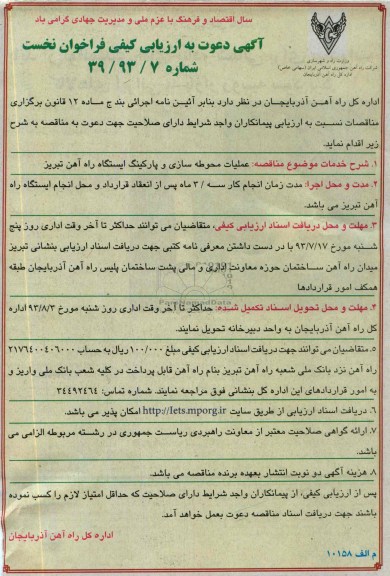 سال اقتصاد و فرهنگ با عزم ملی و مدیریت جهادی گرامی باد
آگهی دعوت به ارزیابی کیفی فراخوان نخست
شماره ۷ / ۹۳ / ۳۹
وزارت راه و شهرسازی
شرکت راه آهن جمهوری اسلامی ایران (سهامی خاص)
اداره کل راه آهن آذربایجان
اداره کل راه آهن آذربایجان در نظر دارد بنابر آئین نامه اجرائی بند ج ماده ۱۲ قانون برگزاری
مناقصات نسبت به ارزیابی پیمانکاران واجد شرایط دارای صلاحیت جهت دعوت به مناقصه به شرح
زیر اقدام نماید.
۱. شرح خدمات موضوع مناقصه: عملیات محوطه سازی و پارکینگ ایستگاه راه آهن تبریز
۲. مدت و محل اجرا: مدت زمان انجام کار سه / ۳ ماه پس از انعقاد قرارداد و محل انجام ایستگاه راه
آهن تبریز می باشد.
۳. مهلت و محل دریافت اسناد ارزیابی کیفی، متقاضیان می توانند حداکثر تا آخر وقت اداری روز پنج
شنبه مورخ ۹۳/۷/۱۷ با در دست داشتن معرفی نامه کتبی جهت دریافت اسناد ارزیابی بنشانی تبریز
میدان راه آهن ساختمان حوزه معاونت اداری و مالی پشت ساختمان پلیس راه آهن آذربایجان طبقه
همکف امور قراردادها
۴. مهلت و محل تحویل اسناد تکمیل شده: حداکثر تا آخر وقت اداری روز شنبه مورخ ۹۳/۸/۳ اداره
کل راه آهن آذربایجان به واحد دبیرخانه تحویل نمایند.
۵. متقاضیان می توانند جهت دریافت اسناد ارزیابی کیفی مبلغ ۱۰۰/۰۰۰ ریال به حساب ۲۱۷۶۴۰۰۴۰۶۰۰۰
راه آهن نزد بانک ملی شعبه راه آهن تبریز بنام راه آهن قابل پرداخت در کلیه شعب بانک ملی واریز و
به امور قراردادهای این اداره کل بنشانی فوق مراجعه نمایند. شماره تماس: ۳۴۴۹۲۴۶۴
۶. دریافت اسناد ارزیابی از طریق سایت http://Iets.mporg.ir امکان پذیر می باشد.
۷. ارائه گواهی صلاحیت معتبر از معاونت راهبردی ریاست جمهوری در رشته مربوطه الزامی می
باشد.
۸. هزینه آگهی دو نوبت انتشار بعهده برنده مناقصه می باشد.
پس از ارزیابی کیفی، از پیمانکاران واجد شرایط دارای صلاحیت که حداقل امتیاز لازم را کسب نموده
باشند جهت دریافت اسناد مناقصه دعوت بعمل خواهد آمد.
اداره کل راه آهن آذربایجان
م الف ۱۰۱۵۸